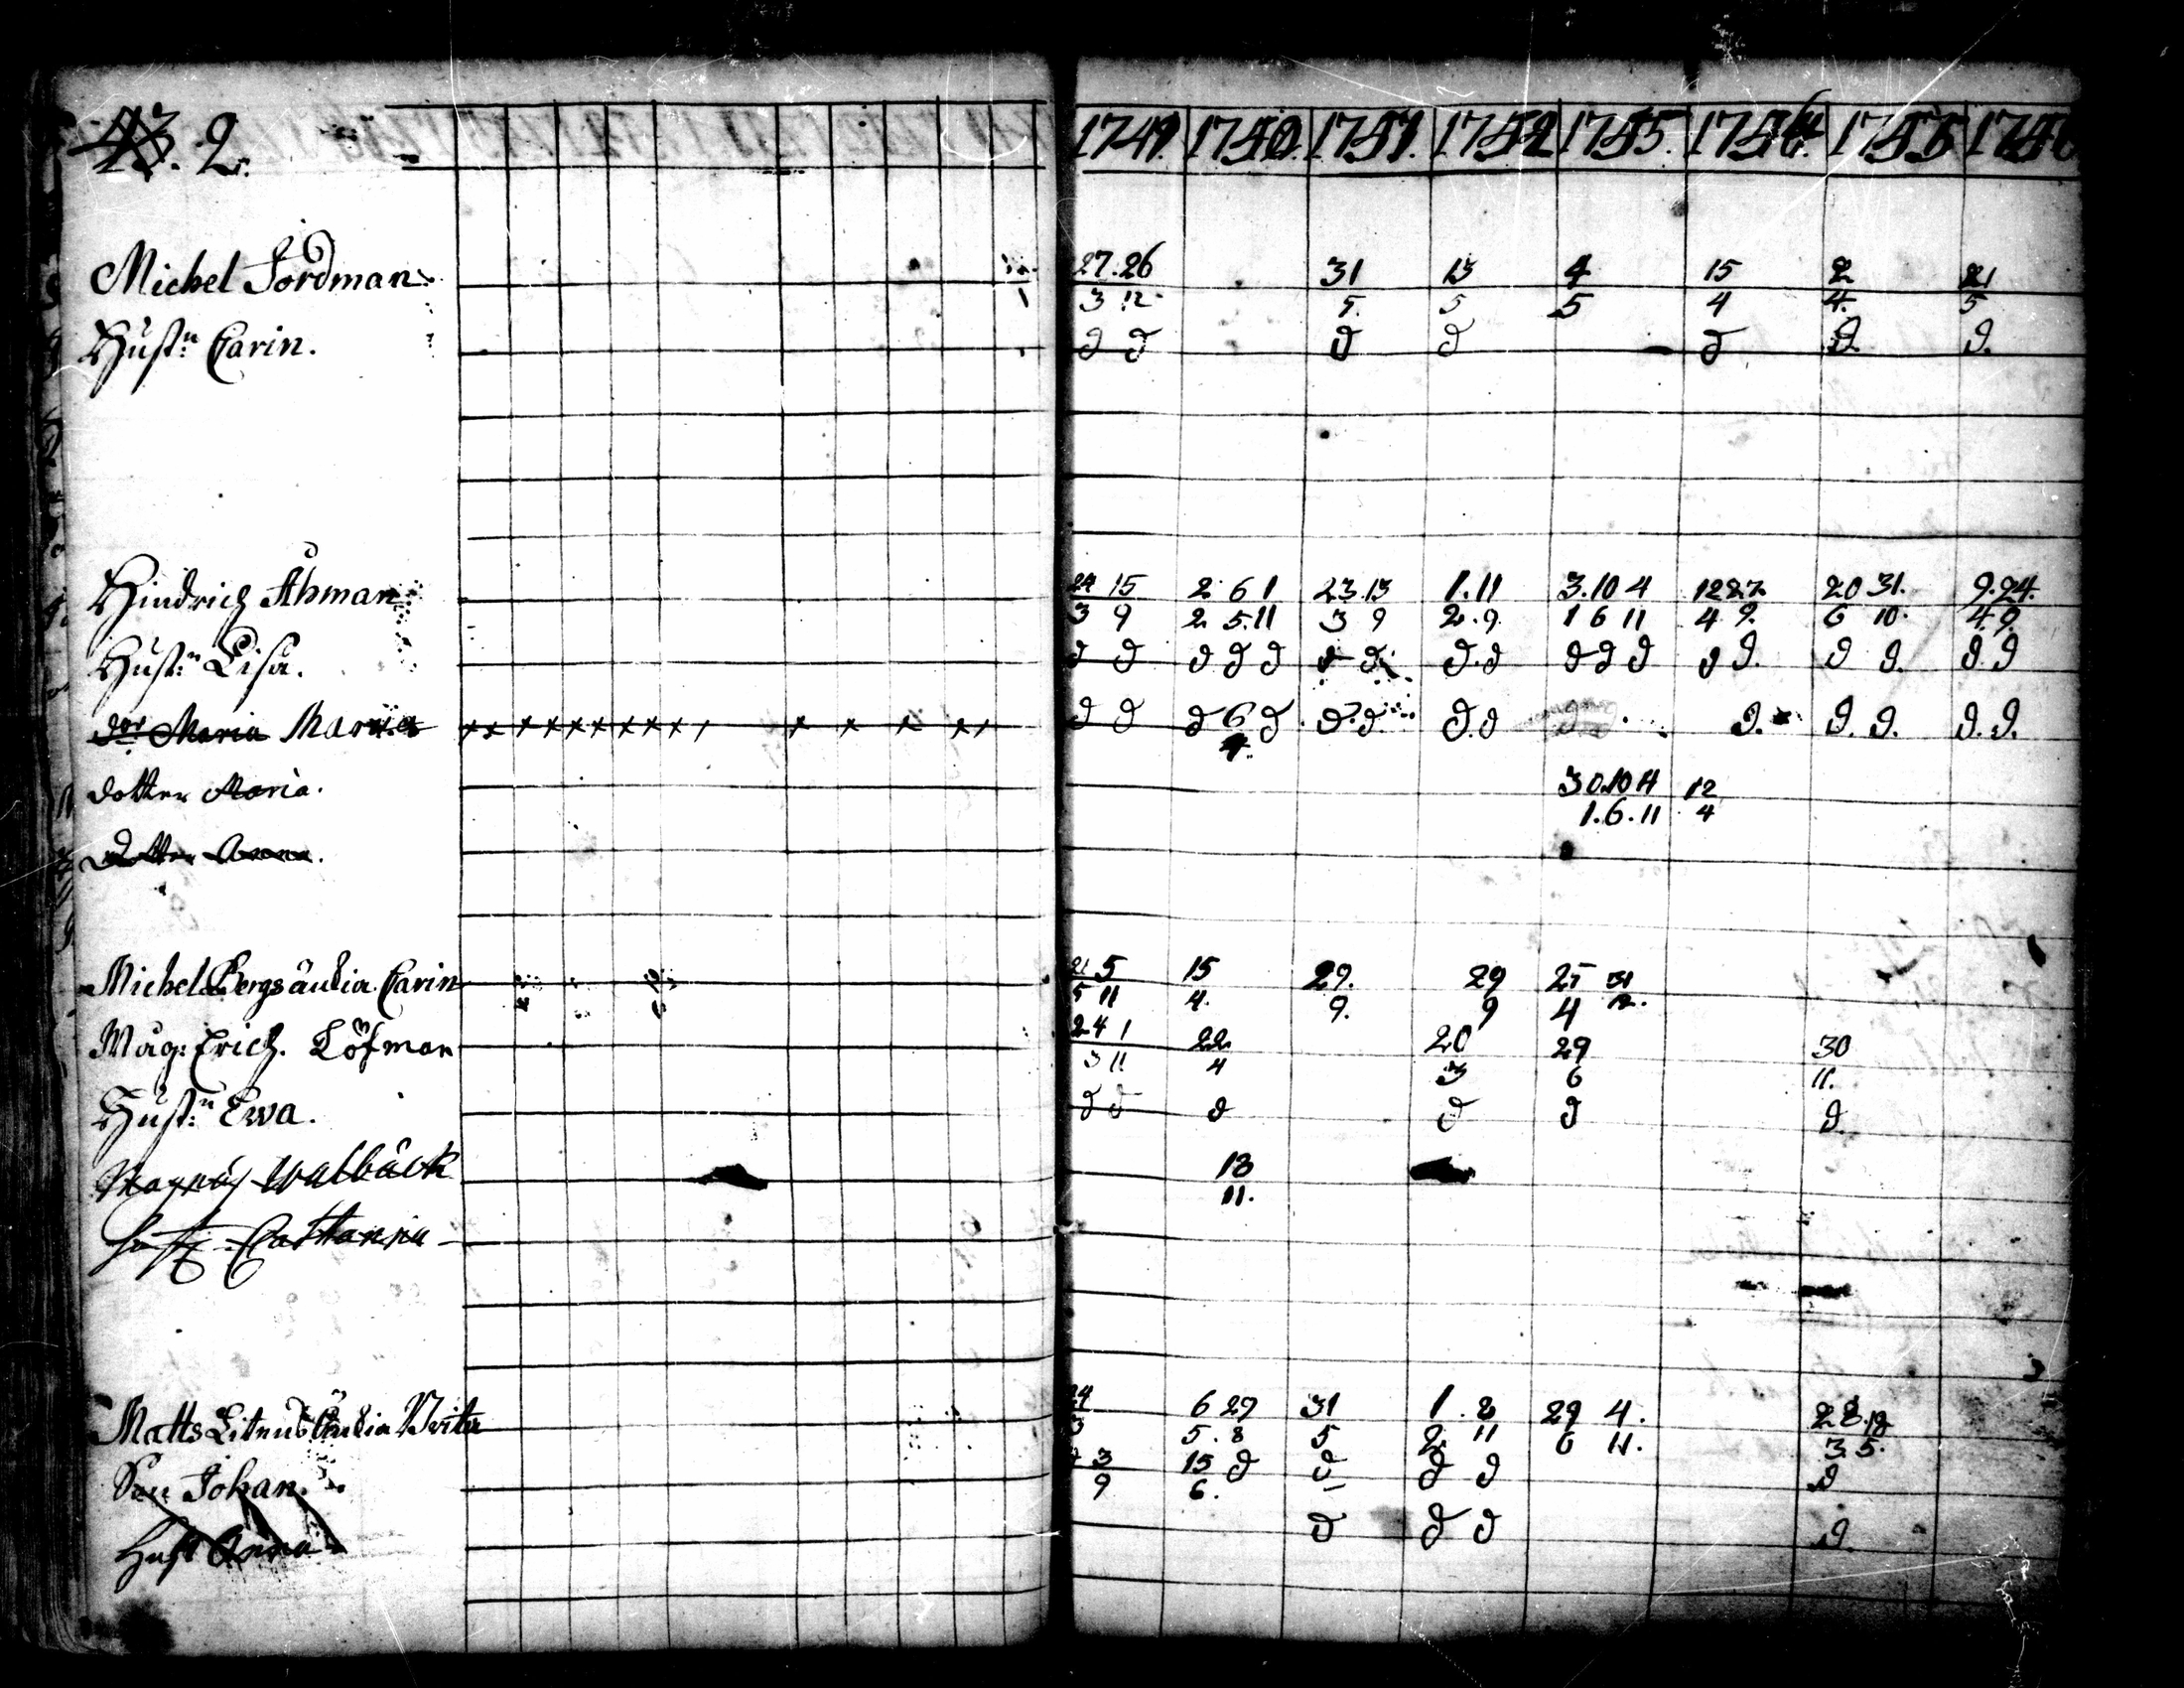 43. 2. 1749. 1750. 1751. 1752 1755. 1754. 1755 175
Michel Jordman. 27.26 31 13 4 15 2 21
3 12. 5. 5 5 4 4. 5
Hust:n Carin. d d d d d d. d.
Hindrich Åhman 24 15 2 6 1 23 13 1.11 3.10 4 12 27. 20 31. 9.24.
3 9 2 5.11 3 9 2.9. 1 6 11 4 9. 6 10. 4.9.
Hust:n Lisa. d d d d d d d d.d d d d d d. d d. d d
dotr Maria Maria d d d 6 d d. d. d.d d. d. d. d. d.
4.
dotter Maria. 30.10 4 12
1.6.11 4
Dotter
Michel Bergs Carin 21 5 15 29. 29 25 31
5 11 4. 9. 9 4 12.
Måg: Erich. Löfman 24 1 22 20 29 30
3 11 4 3 6 11.
Hust:n Ewa. d d d d d d.
Walbäck 18
11.
Matts 24 6 29 31 1. 2 29 4. 28.18
3 5. 8 5 2. 11 6 11. 3 5.
Son Johan. 3 15 d d d d d
9 6.
Hust Anna d d d d.